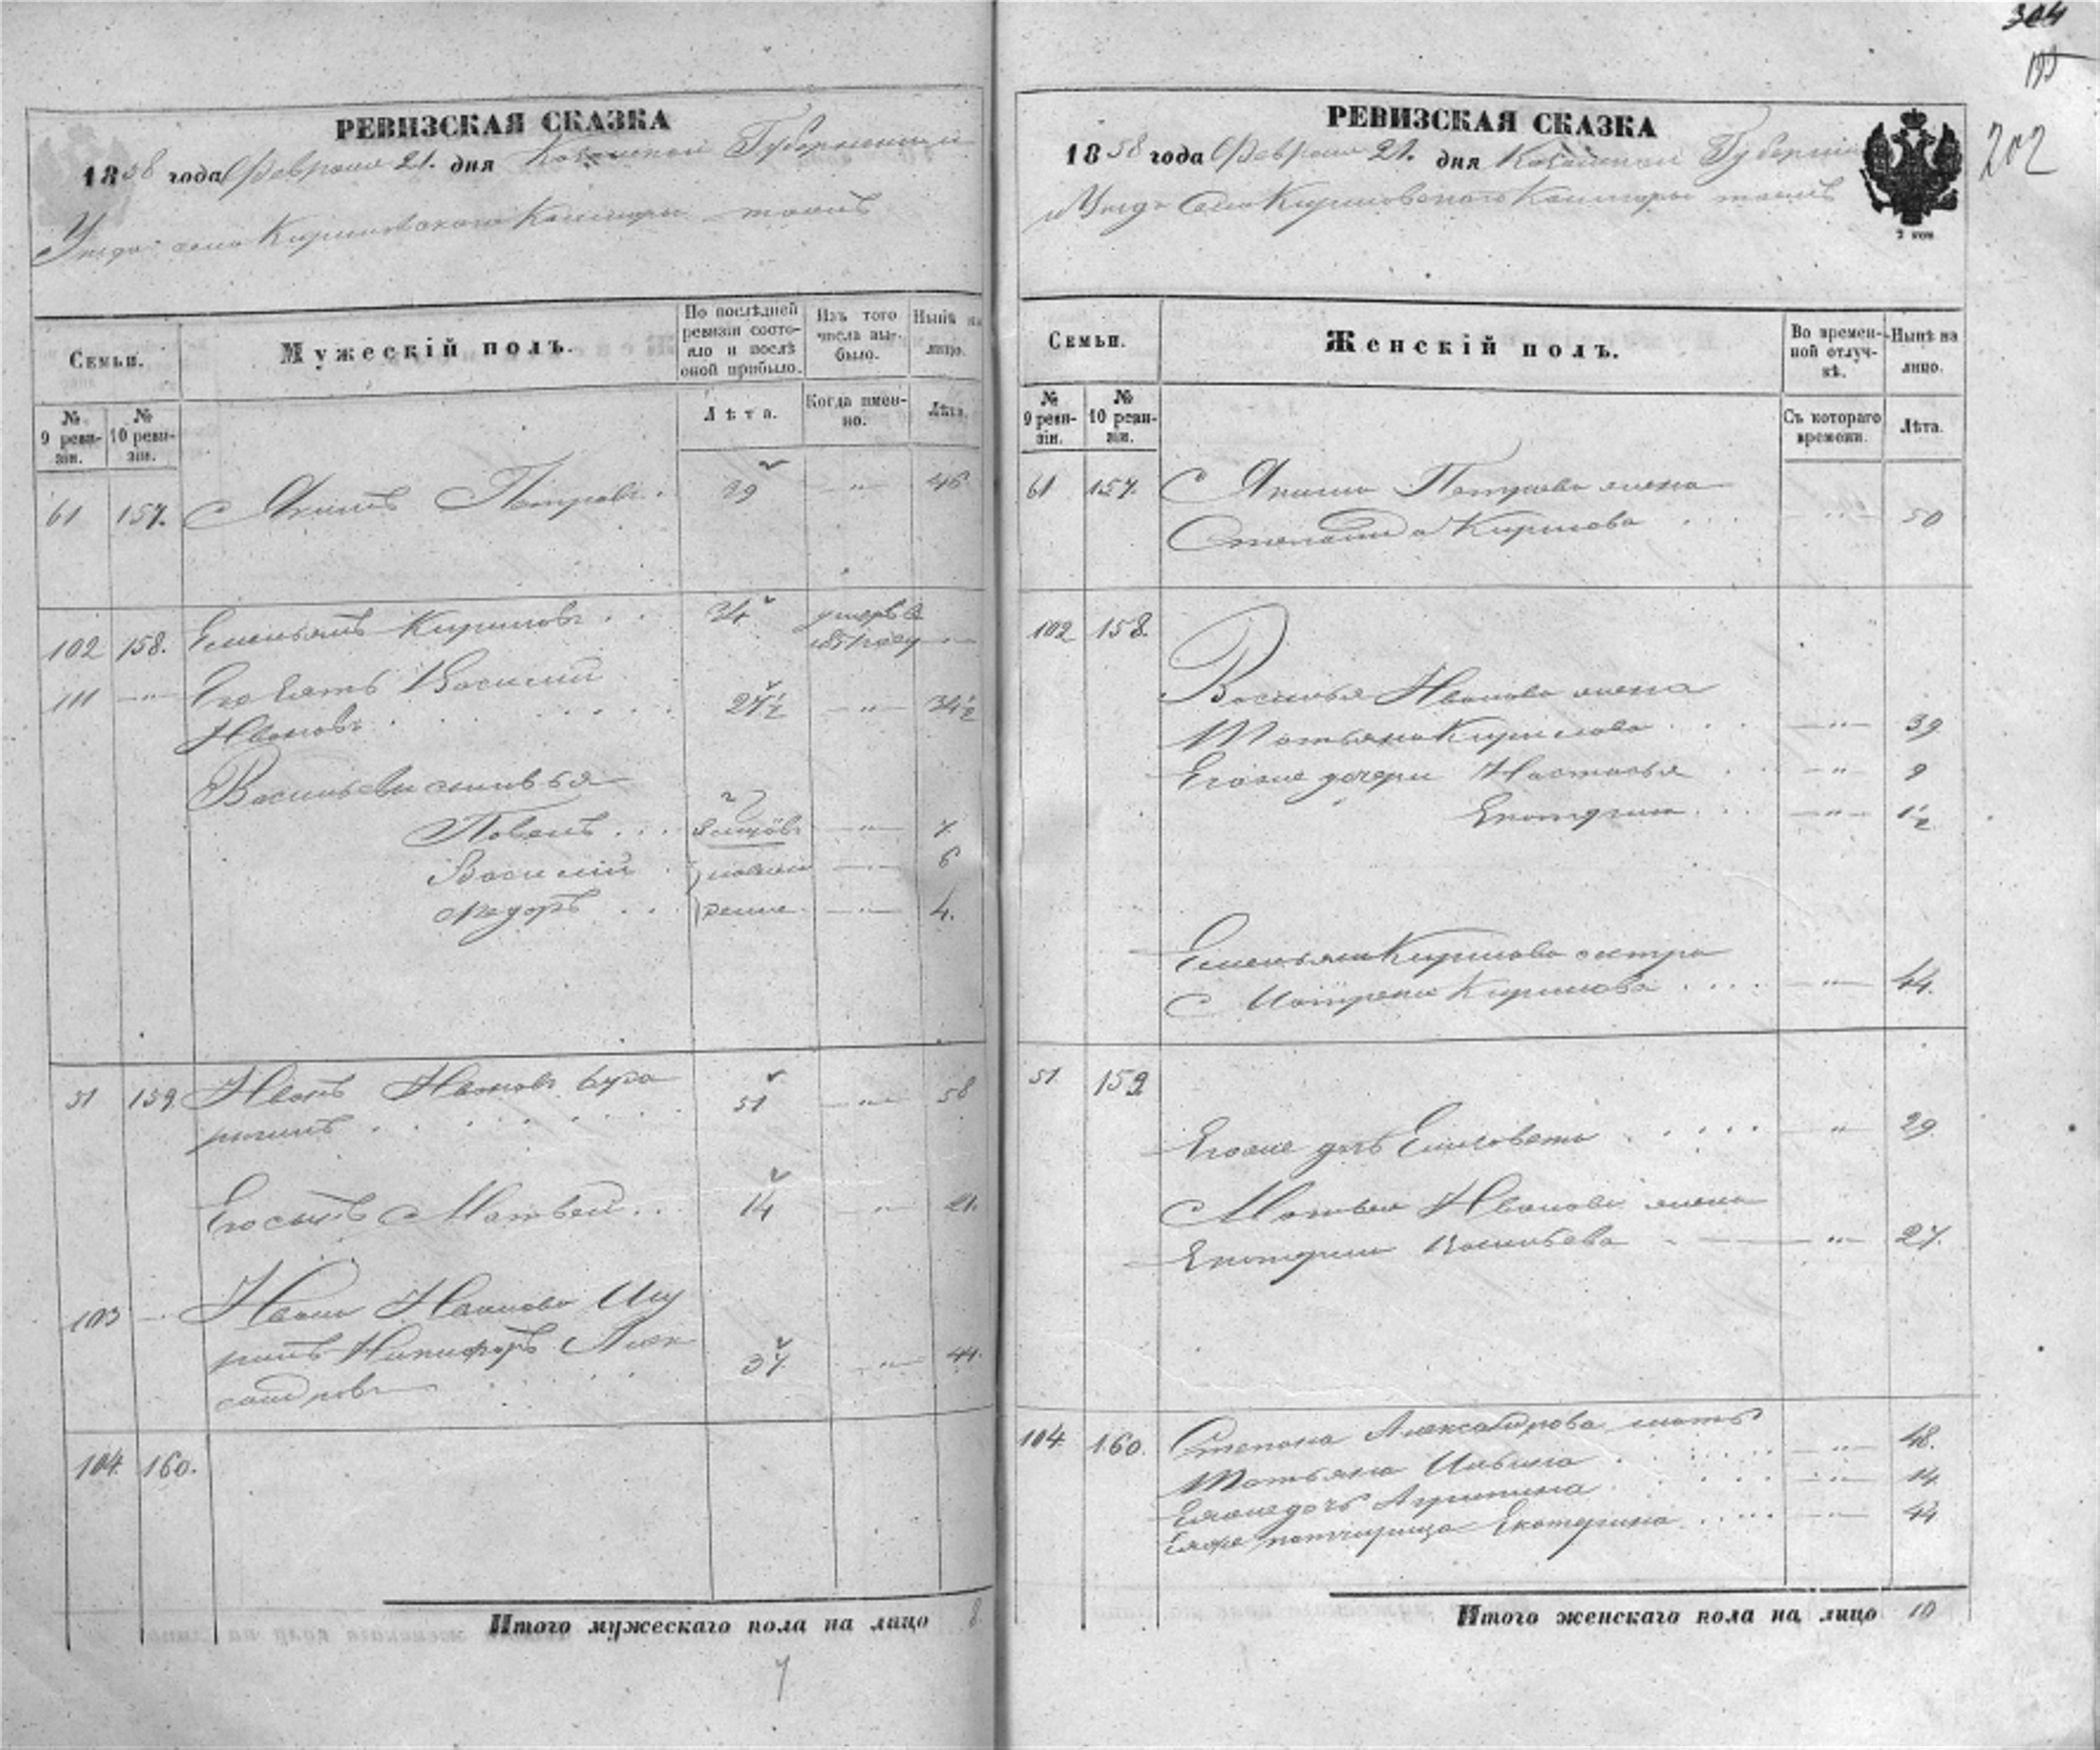 304
202
РЕВИЗСКАЯ СКАЗКА
1858 года Февраля 21. дня Казанской Губернии и
Уезда села Кириловскаго Конторы
Семьи.
Мужескій полъ.
По послѣдней ревизіи состояло и послѣ оной прибыло.
Изъ того числа выбыло.
Нынѣ на лицо.
№ 9 ревизіи.
№ 10 ревизіи.
Лѣта.
Когда именно.
Лѣта.
61 157. Акимъ Петровъ. 29 —"— 46
102 158. Емельянъ Кириловъ . . 34 умеръ в
111 —"— Его зять Василий
Ивановъ . . . . 27½ —"— 34½
Васильевы сыновья
Павелъ . . . —"— 7.
Василий . —"— 6
Федоръ . . —"— 4.
51 159 Иванъ Ивановъ
51 —"— 58
Его сынъ Матвей . . 14 —"— 21.
103 — Ивана Иванова Шу
ринъ Никифоръ Алек
сандровъ 37. —"— 44.
104. 160.
Итого мужескаго пола на лицо 8.
7
РЕВИЗСКАЯ СКАЗКА
1858 года Февраля 21. дня Казанской Губернии
и Уезда Села Кириловскаго Конторы
2 коп
Семьи.
Женскій полъ.
Во временной отлучкѣ.
Нынѣ на лицо.
№ 9 ревизіи.
№ 10 ревизіи.
Съ котораго времени.
Лѣта.
61 157. Акима Петрова жена
Степанида Кирилова . . . —"— 50
102 158.
Василья Иванова жена
Татьяна Кирилова . . . —"— 39
Егоже дочери Настасья . . —"— 9
Екатерина . . . —"— 1½
Емельяна Кирилова сестра
Матрена Кирилова . . . . —"— 44.
51. 159
Егоже дочь Елисовета . . . . . —"— 29.
Матвея Иванова жена
Екатерина Васильева —"— 27.
104. 160. Степана Александрова мать
Татьяна Ильина . . . . . —"— 48.
Еяже дочь Агрипина . . . . —"— 14.
Еяже патчирица Екатерина . . . . . —"—
Итого женскаго пола на лицо 10